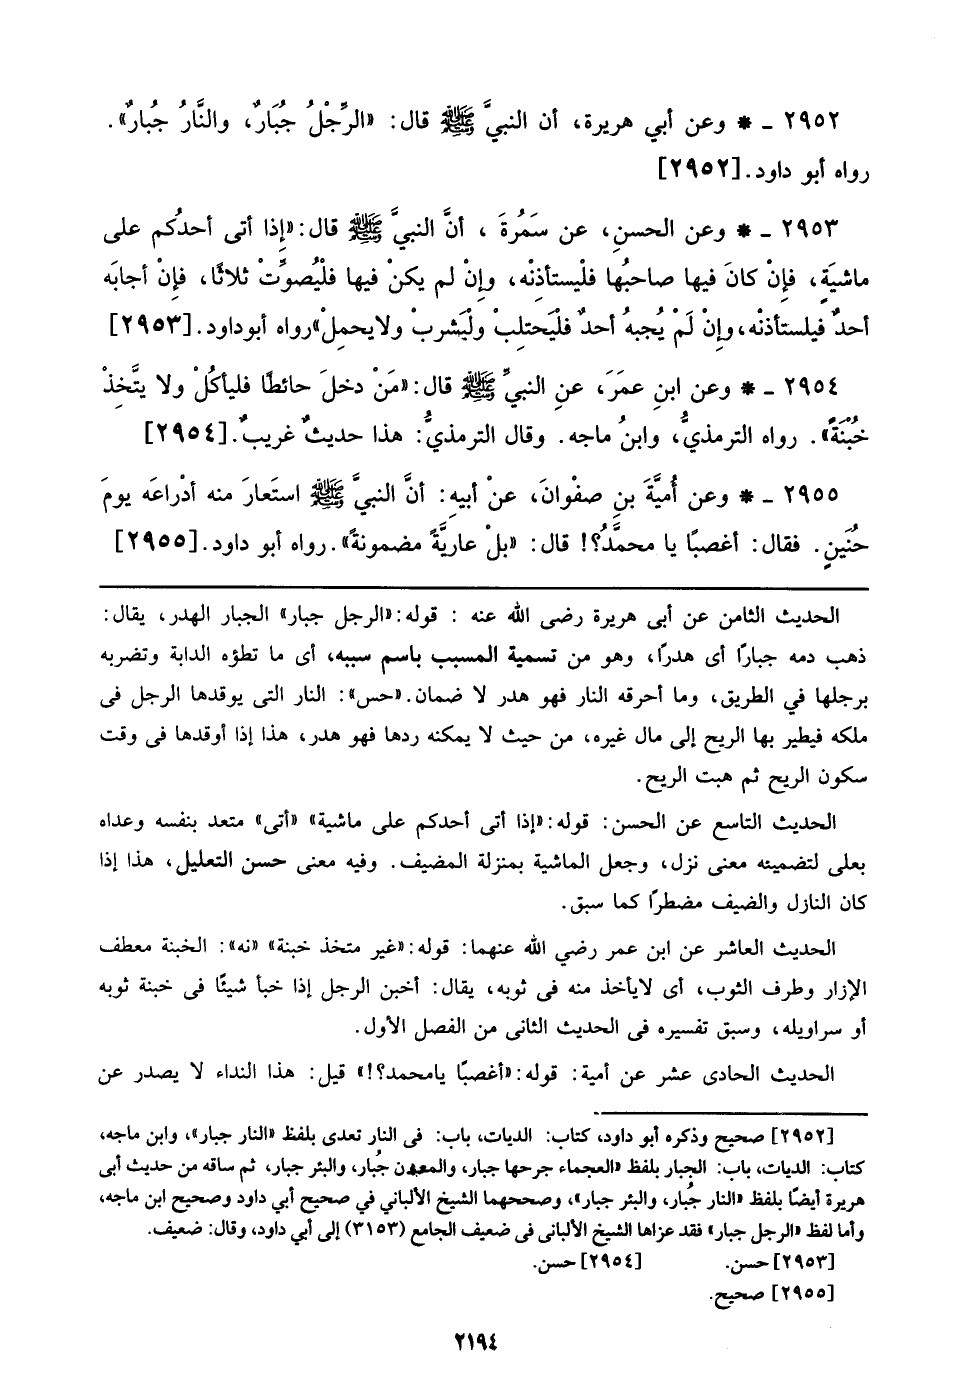 ٢٩٥٢ ـ * وعن أبي هريرة، أن النبيَّ ﷺ قال: «الرِّجْلُ جُبَارٌ، والنَّارُ جُبارٌ».
رواه أبو داود. [٢٩٥٢]
٢٩٥٣ ـ * وعن الحسنِ، عن سَمُرةَ ، أنَّ النبيَّ ﷺ قال: «إِذا أتى أحدُكم على
ماشيَةٍ، فإِنْ كانَ فيها صاحبُها فلْيستأذِنْه، وإِنْ لم يكنْ فيها فلْيُصوِّتْ ثلاثًا، فإِنْ أجابَه
أحدٌ فيلستأذنْه، وإِنْ لَمْ يُجبهُ أحدٌ فلْيَحتلِبْ ولْيَشربْ ولايحملْ» رواه أبوداود. [٢٩٥٣]
٢٩٥٤ ـ * وعن ابنِ عمَرَ، عنِ النبيِّ ﷺ قال: «مَنْ دخلَ حائطًا فليأكُلْ ولا يتَّخِذْ
خُبْنَةً». رواه الترمذيُّ، وابنُ ماجه. وقال الترمذيُّ: هذا حديثٌ غريبٌ. [٢٩٥٤]
٢٩٥٥ ـ * وعن أُميَّةَ بنِ صفْوانَ، عنْ أبيهِ: أنَّ النبيَّ ﷺ استَعارَ منه أدْراعَه يومَ
حُنَينٍ. فقال: أغصبًا يا محمَّدُ؟! قال: «بلْ عاريَّةً مضمونةً». رواه أبو داود. [٢٩٥٥]
الحديث الثامن عن أبى هريرة رضى الله عنه : قوله: «الرجل جبار» الجبار الهدر، يقال:
ذهب دمه جبارًا أى هدرًا، وهو من تسمية المسبب باسم سببه، أى ما تطؤه الدابة وتضربه
برجلها في الطريق، وما أحرقه النار فهو هدر لا ضمان. «حس»: النار التى يوقدها الرجل فى
ملكه فيطير بها الريح إلى مال غيره، من حيث لا يمكنه ردها فهو هدر، هذا إذا أوقدها فى وقت
سكون الريح ثم هبت الريح.
الحديث التاسع عن الحسن: قوله: «إذا أتى أحدكم على ماشية» «أتى» متعد بنفسه وعداه
بعلى لتضمينه معنى نزل، وجعل الماشية بمنزلة المضيف. وفيه معنى حسن التعليل، هذا إذا
كان النازل والضيف مضطرًا كما سبق.
الحديث العاشر عن ابن عمر رضي الله عنهما: قوله: «غير متخذ خبنة» «نه»: الخبنة معطف
الإزار وطرف الثوب، أى لايأخذ منه فى ثوبه، يقال: أخبن الرجل إذا خبأ شيئًا فى خبنة ثوبه
أو سراويله، وسبق تفسيره فى الحديث الثانى من الفصل الأول.
الحديث الحادى عشر عن أمية: قوله: «أغصبًا يامحمد؟!» قيل: هذا النداء لا يصدر عن
[٢٩٥٢] صحيح وذكره أبو داود، كتاب: الديات، باب: فى النار تعدى بلفظ «النار جبار»، وابن ماجه،
كتاب: الديات، باب: الجبار بلفظ «العجماء جرحها جبار، والمعدن جُبار، والبئر جبار، ثم ساقه من حديث أبى
هريرة أيضًا بلفظ «النار جُبار، والبئر جبار»، وصححهما الشيخ الألباني في صحيح أبي داود وصحيح ابن ماجه،
وأما لفظ «الرجل جبار» فقد عزاها الشيخ الألبانى فى ضعيف الجامع (٣١٥٣) إلى أبي داود، وقال: ضعيف.
[٢٩٥٣] حسن. [٢٩٥٤] حسن.
[٢٩٥٥] صحيح.
٢١٩٤